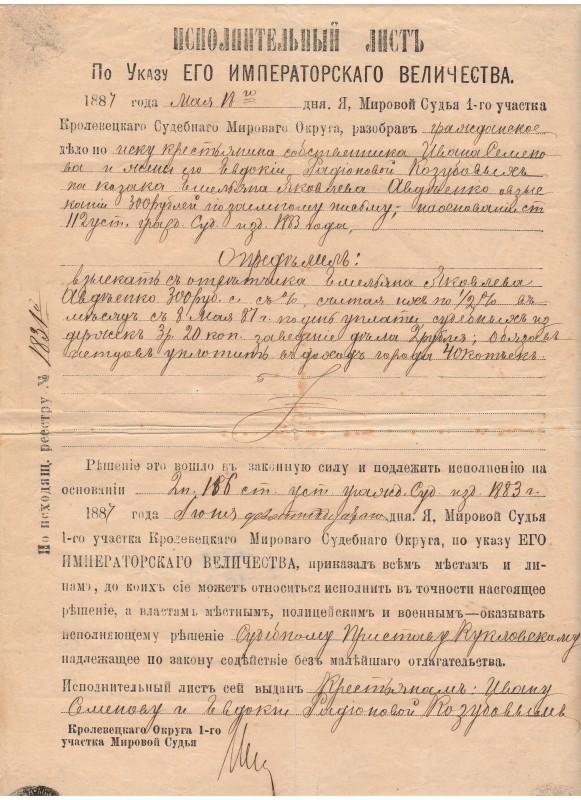 ИСПОЛНИТЕЛЬНЫЙ ЛИСТЪ
По Указу ЕГО ИМПЕРАТОРСКАГО ВЕЛИЧЕСТВА.
1887 года Мая 18 го дня. Я, Мировой Судья 1-го участка
Кролевецкаго Судебнаго Мироваго Округа, разобравъ гражданское
дѣло по иску крестьянина собственника Ивана Семено
ва и жены его Евдокіи Родіоновой Козубовыхъ
на козака Емельяна Яковлева Авдѣенко о взы
сканіи 300 рублей по заемному письму, на основаніи ст
112 уст. гражд. Суд. изд. 1883 года,
Опредѣлилъ:
взыскать съ отвѣтчика Емельяна Яковлева
Авдѣенко 300 руб. съ %, считая ихъ по 1/2 % въ
мѣсяцъ съ 8 Мая 87 г. по день уплаты, судебныхъ из
держекъ 3 р. 20 коп. за веденіе дѣла 2 рубля;
уплатить въ доходъ города 40 копѣекъ.
По исходящ. реестру № 1831
Рѣшеніе это вошло въ законную силу и подлежитъ исполненію на
основаніи 2 п. 156 ст. уст гражд. Суд. изд. 1883 г.
1887 года Іюня дня. Я, Мировой Судья
1-го участка Кролевецкаго Мироваго Судебнаго Округа, по указу ЕГО
ИМПЕРАТОРСКАГО ВЕЛИЧЕСТВА, приказалъ всѣмъ мѣстамъ и ли-
цамъ, до коихъ сіе можетъ относиться исполнить въ точности настоящее
рѣшеніе, а властямъ мѣстнымъ, полицейскимъ и военнымъ—оказывать
исполняющему рѣшеніе Судебному Приставу Кукловскому
надлежащее по закону содѣйствіе безъ малѣйшаго отлагательства.
Исполнительный листъ сей выданъ Крестьянамъ: Ивану
Семенову и Евдокіи Родіоновой Козубовымъ
Кролевецкаго Округа 1-го
участка Мировой Судья